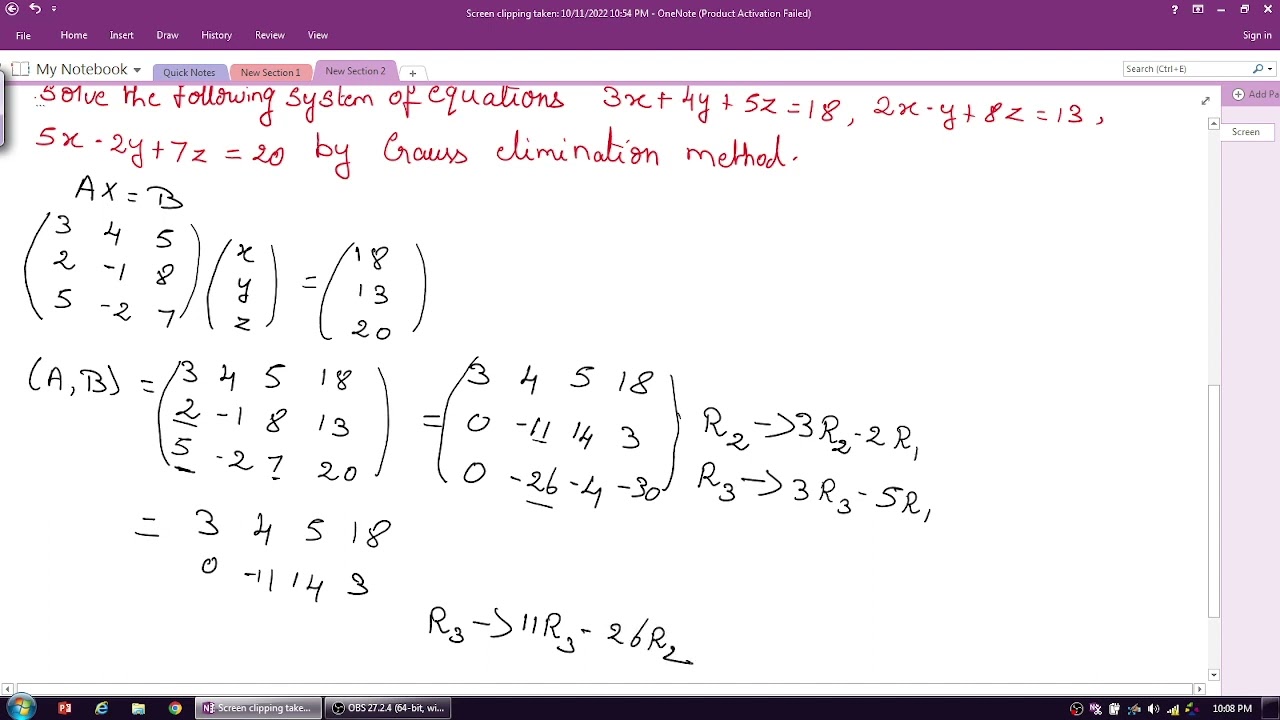 Screen clipping taken: 10/11/2022 10:54 PM - OneNote (Product Activation Failed)
File Home Insert Draw History Review View Sign in
My Notebook Quick Notes New Section 1 New Section 2 Search (Ctrl+E)
Add Pa
Screen
Solve the following system of equations 3x+4y+5z=18, 2x-y+8z=13,
5x-2y+7z=20 by Gauss elimination method.
AX=B
3 4 5 x 18
2 -1 8 y = 13
5 -2 7 z 20
(A,B) = 3 4 5 18 = 3 4 5 18
2 -1 8 13 0 -11 14 3 R2->3R2-2R1
5 -2 7 20 0 -26 -4 -30 R3->3R3-5R1
= 3 4 5 18
0 -11 14 3
R3->11R3-26R2
Screen clipping take... OBS 27.2.4 (64-bit, wi... 10:08 PM